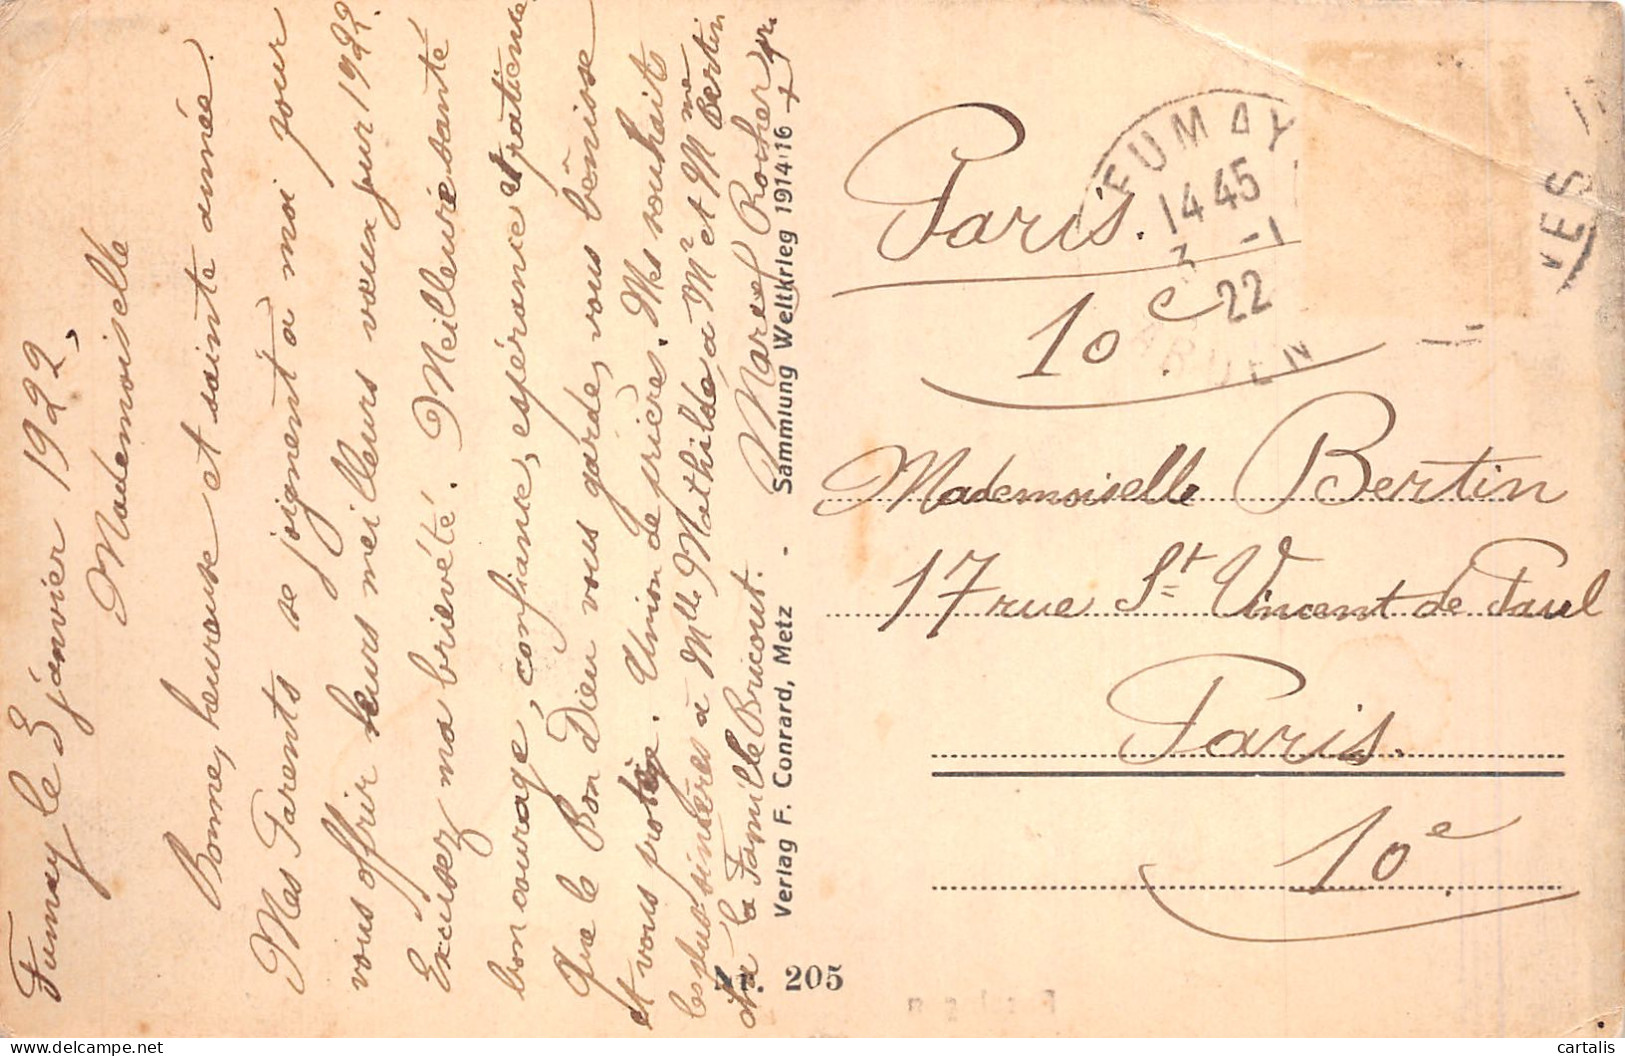 Fumay le 3 janvier 1922.
Mademoiselle
Bonne, heureuse et sainte année.
Mes Parents se joignent à moi pour
vous offrir leurs meilleurs vœux pour 1922.
Excusez ma brièveté. Meilleure santé
bon courage, confiance, espérance et patience.
Que le Bon Dieu vous garde, vous bénisse
et vous protège. Union de prières. Mes souhaits
les plus sincères à Mlle Mathilde, à Mr et Mme Bertin
et à la Famille Bricout. Marcel Rocher
Verlag F. Conrard, Metz - Sammlung Weltkrieg 1914/16
Nr. 205
FUMAY
14 45
3 -1
22
ARDEN
Paris.
10e
Mademoiselle Bertin
17 rue St Vincent de Paul
Paris.
10e
cartalis